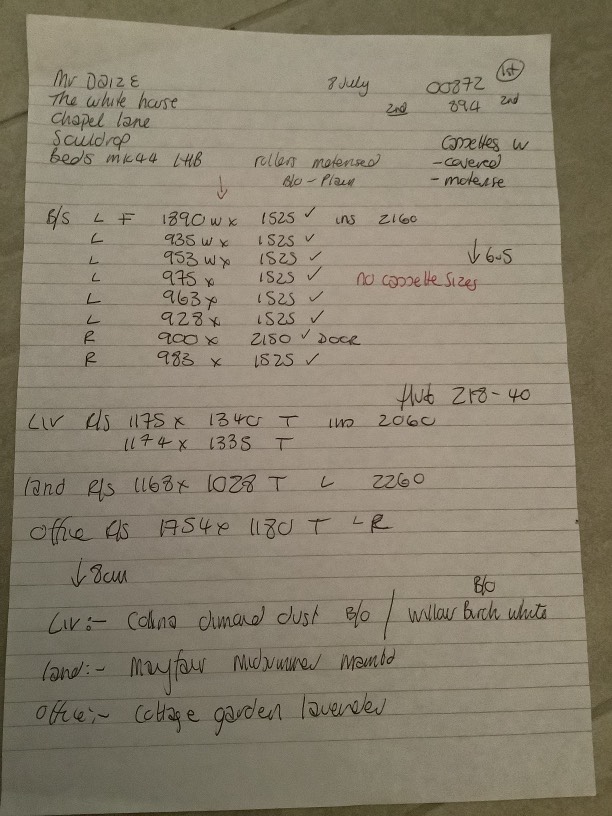 Mr Daize 8 July 00872 1st
The white house 2nd 894 2nd
Chapel lane
Souldrop Cassettes w
Beds MK44 1HB rollers motorised - covered
B/O - Plain - motorise
↓
B/S L F 1890 w x 1525 ✓ ins 2160
L 935 w x 1525 ✓
L 953 w x 1525 ✓ ↓ 6.5
L 975 x 1525 ✓ no cassette sizes
L 963 x 1525 ✓
L 928 x 1525 ✓
R 900 x 2150 ✓ Door
R 983 x 1525 ✓
218-40
Liv R/s 1175 x 1340 T 2060
1174 x 1335 T
land R/s 1168 x 1028 T L 2260
Office R/s 1754 x 1180 T L R
↓ 8cm
B/O
Liv :- dimand dust B/O / Willow Birch white
land :- Mayfair Midsummer
Office :- Cottage garden lavender